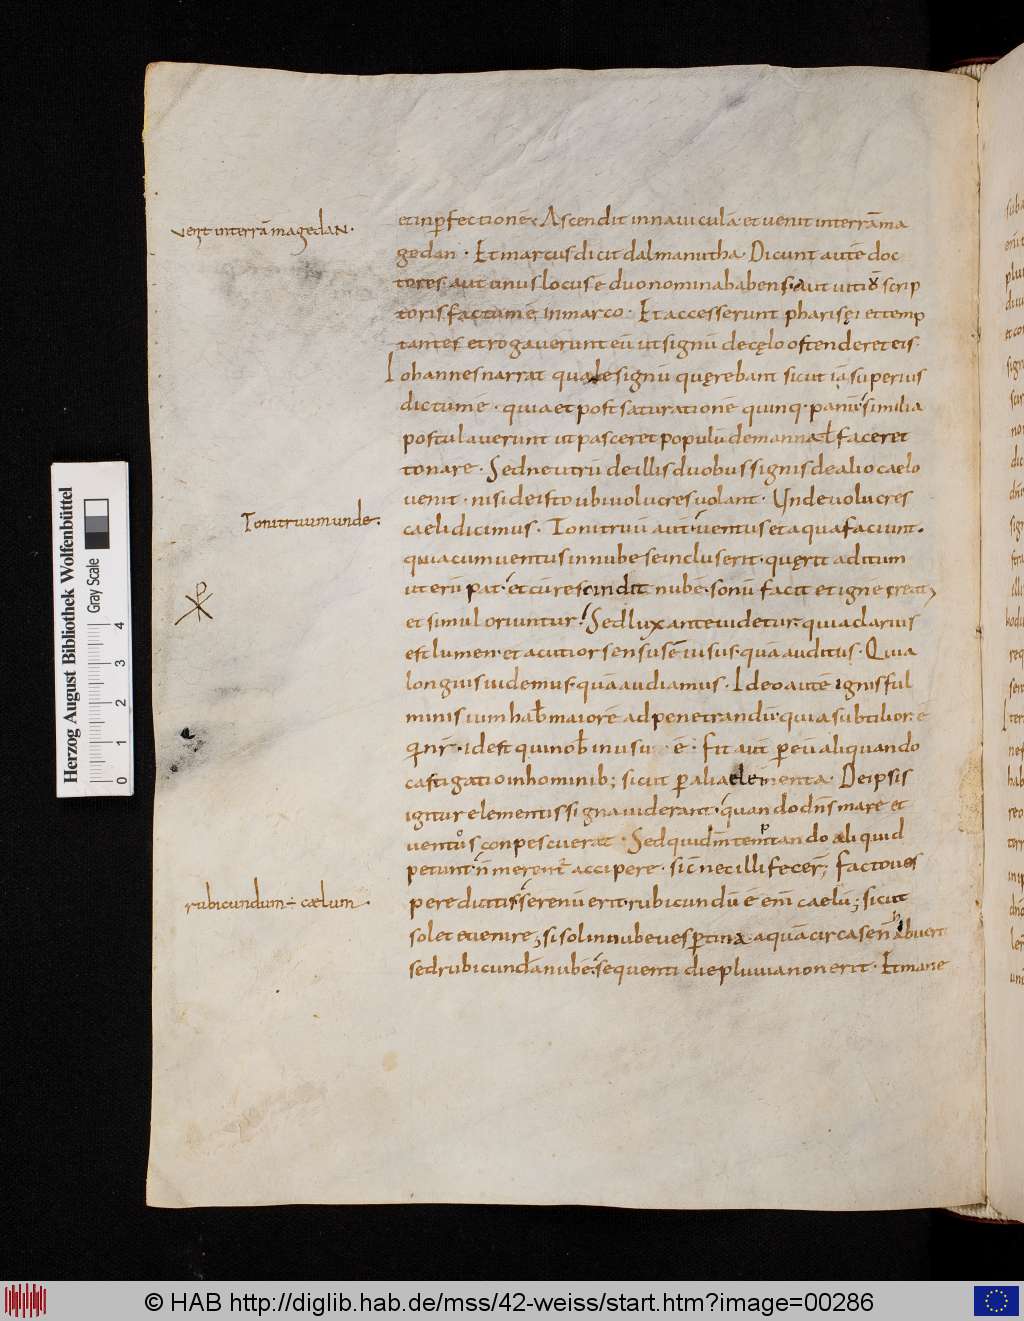 venit interrā magedan.
et inꝑfectionē. Ascendit in nauiculā et uenit interrā ma
gedan. Et marcus dicit dalmanutha. Dicunt autē doc
tores. aut unus locus ē duo nomina habens. aut uitiū scrip
toris factum ē in marco. Et accesserunt pharisęi et temp
tantes et rogauerunt eū ut signū de cęlo ostenderet eis.
Iohannes narrat quale signū quęrebant sicut iā superius
dictum ē. quia et post saturationē quinq. panū similia
postulauerunt ut pasceret populū de manna ł faceret
tonare. Sed neutrū de illis duobus signis de alio caelo
uenit. nisi de isto ubi uolucres uolant. Unde uolucres
Tonitruum unde.
caeli dicimus. Tonitruū aut uentus et aqua faciunt.
quia cum uentus in nube se incluserit. quęrit aditum
ut erūpat. et cū rescindit nubē. sonū facit et igne creat;
et simul oriuntur. Sed lux ante uidetur. quia clarius
est lumen. et acutior sensus ē uisus. quā auditus. Quia
longius uidemus. quā audiamus. Ideo autē ignis ful
minis uim hab maiorē ad penetrandū. quia subtilior ē
qī nr̄. id est qui nob in usu ē. Fit aut̄ ꝑ eū aliquando
castigatio in hominib; sicut ꝑ alia elementa. De ipsis
igitur elementis signa uiderant. quando dn̄s mare et
uentos conpescuerat. Sed quidm̄ temptando aliquid
petunt. n̄ merent̄ accipere. sic nec illi fecer̄; facto ues
rubicundum ÷ caelum.
pere dicitis serenū erit. rubicundū ē eni caelū; sicut
solet euenire; si sol in nube uespertina aquā circa se n̄ habuerit
sed rubicundā nubē. sequenti die pluuia non erit. Et mane
Herzog August Bibliothek Wolfenbüttel
Gray Scale
0 1 2 3 4
© HAB http://diglib.hab.de/mss/42-weiss/start.htm?image=00286